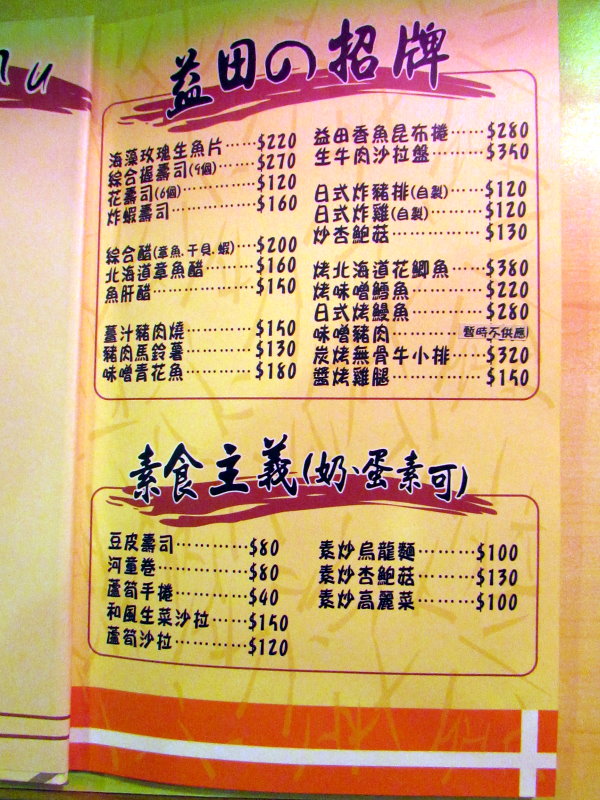 nu
益田の招牌
海藻玫瑰生魚片……$220
綜合握壽司(9個)……$270
花壽司(6個)…………$120
炸蝦壽司…………$160
綜合醋(章魚.干貝.蝦)…$200
北海道章魚醋………$160
魚肝醋………………$150
薑汁豬肉燒…………$150
豬肉馬鈴薯…………$130
味噌青花魚…………$180
益田香魚昆布捲……$280
生牛肉沙拉盤………$350
日式炸豬排(自製)……$120
日式炸雞(自製)………$120
炒杏鮑菇……………$130
烤北海道花鯽魚……$380
烤味噌鱈魚…………$220
日式烤鰻魚…………$280
味噌豬肉…………暫時不供應
炭烤無骨牛小排……$320
醬烤雞腿……………$150
素食主義(奶.蛋素可)
豆皮壽司…………$80
河童卷……………$80
蘆筍手捲…………$40
和風生菜沙拉……$150
蘆筍沙拉…………$120
素炒烏龍麵………$100
素炒杏鮑菇………$130
素炒高麗菜………$100